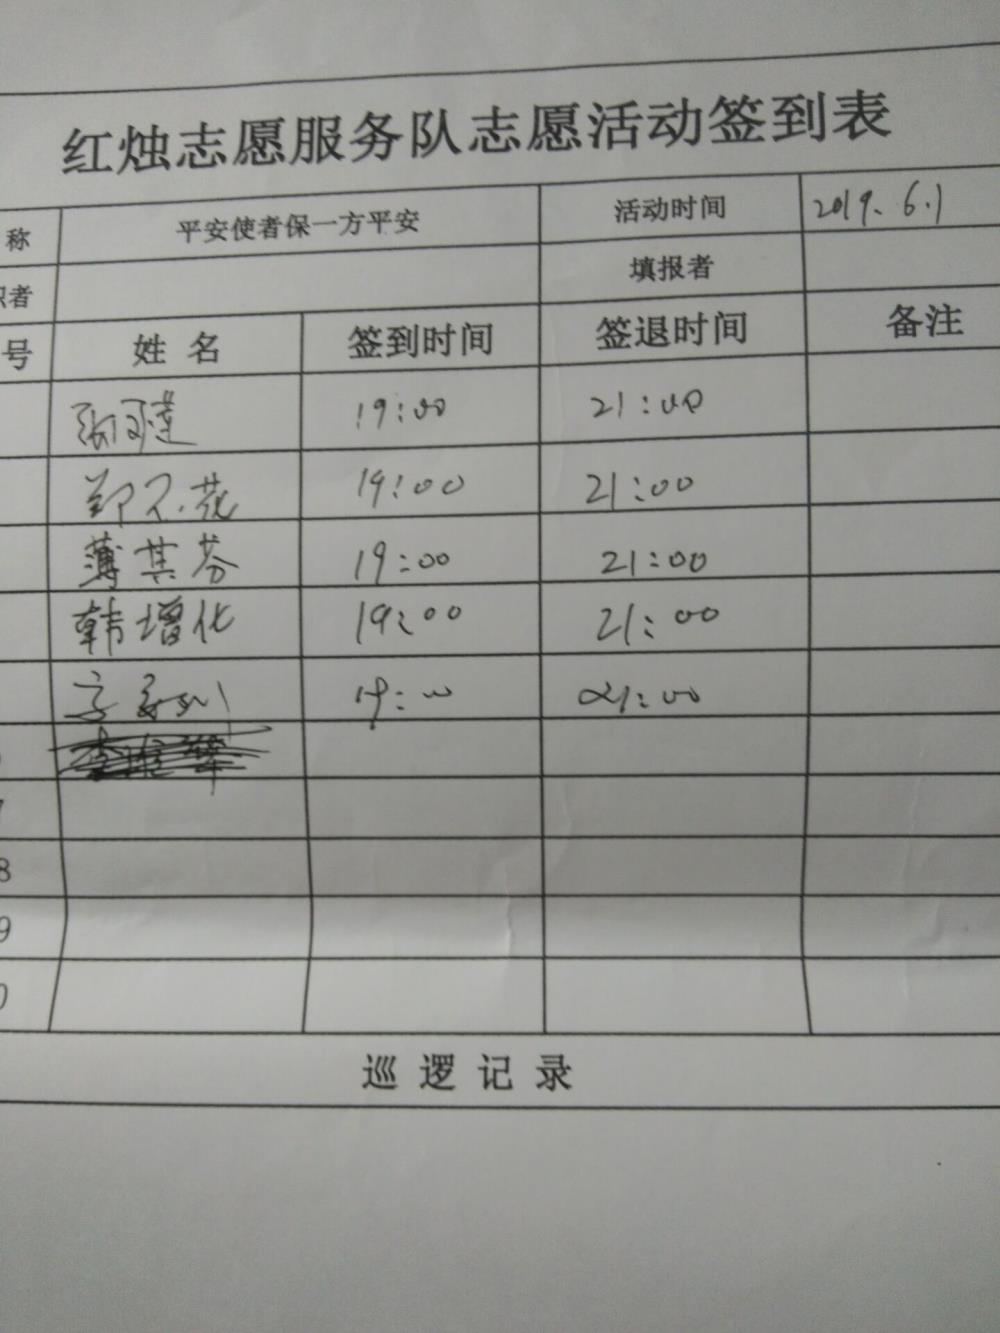 红烛志愿服务队志愿活动签到表
称 平安使者保一方平安 活动时间 2019.6.1
织者 填报者
号 姓 名 签到时间 签退时间 备注
19:00 21:00
19:00 21:00
薄其芬 19:00 21:00
韩增化 19:00 21:00
19:00 21:00
7
8
9
0
巡 逻 记 录